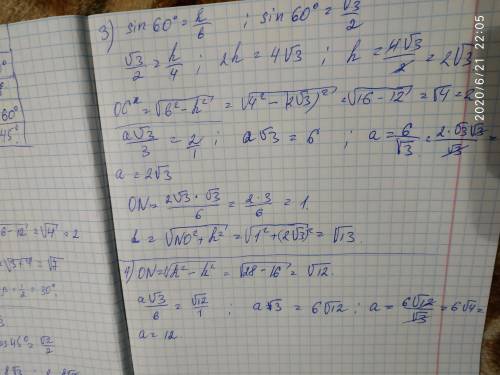 3) sin 60° = h/b ; sin 60° = √3/2
√3/2 = h/4 ; 2h = 4√3 ; h = 4√3/2 = 2√3
= √(b² - h²) = √(4² - (2√3)²) = √(16 - 12) = √4 = 2
a√3/3 = 2/1 ; a√3 = 6 ; a = 6/√3 = 2·√3·√3/√3 =
a = 2√3
ON = 2√3 · √3/6 = 2·3/6 = 1
= √(NO² + h²) = √(1² + (2√3)²) = √13
4) ON = √(h² - h²) = √(28 - 16) = √12
a√3/6 = √12/1 ; a√3 = 6√12 ; a = 6√12/√3 = 6√4 =
a = 12
60°
45°
6-12 = √4 = 2
3+4 = √7
= 1/2 = 30°
cos 45° = √2/2
2020/6/21 22:05